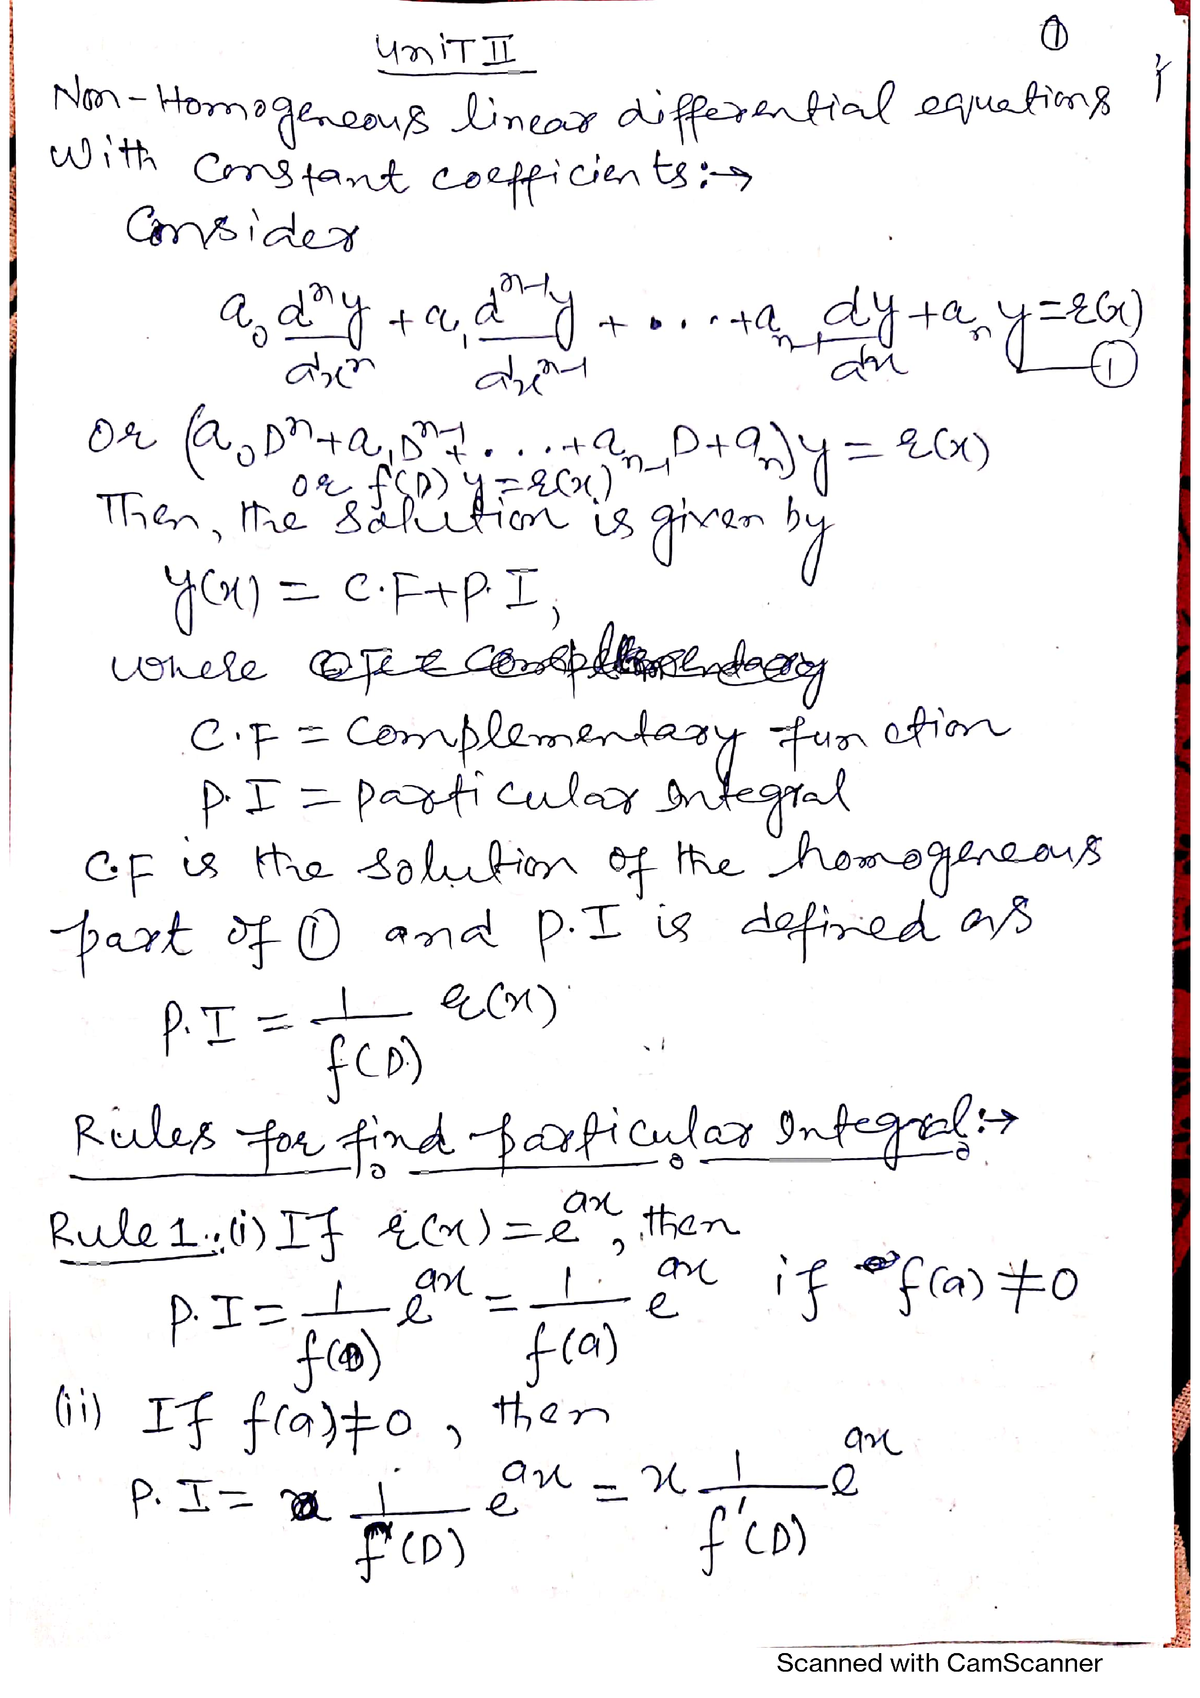 ①
Unit II
Non-Homogeneous linear differential equations
With constant coefficients:→
Consider
a₀ dⁿy/dxⁿ + a₁ dⁿ⁻¹y/dxⁿ⁻¹ + .... + aₙ₋₁ dy/dx + aₙ y = r(x) —①
or (a₀Dⁿ + a₁Dⁿ⁻¹ + .... + aₙ₋₁ D + aₙ)y = r(x)
or f(D) y = r(x)
Then, the solution is given by
y(x) = C.F + P.I,
where
C.F = Complementary function
P.I = Particular Integral
C.F is the solution of the homogeneous
part of ① and P.I is defined as
P.I = 1/f(D) r(x)
Rules for find particular Integral:→
Rule 1:(i) If r(x) = e^{ax}, then
P.I = 1/f(D) e^{ax} = 1/f(a) e^{ax} if f(a) ≠ 0
(ii) If f(a) ≠ 0, then
P.I = 1/f(D) e^{ax} = x 1/f'(D) e^{ax}
Scanned with CamScanner